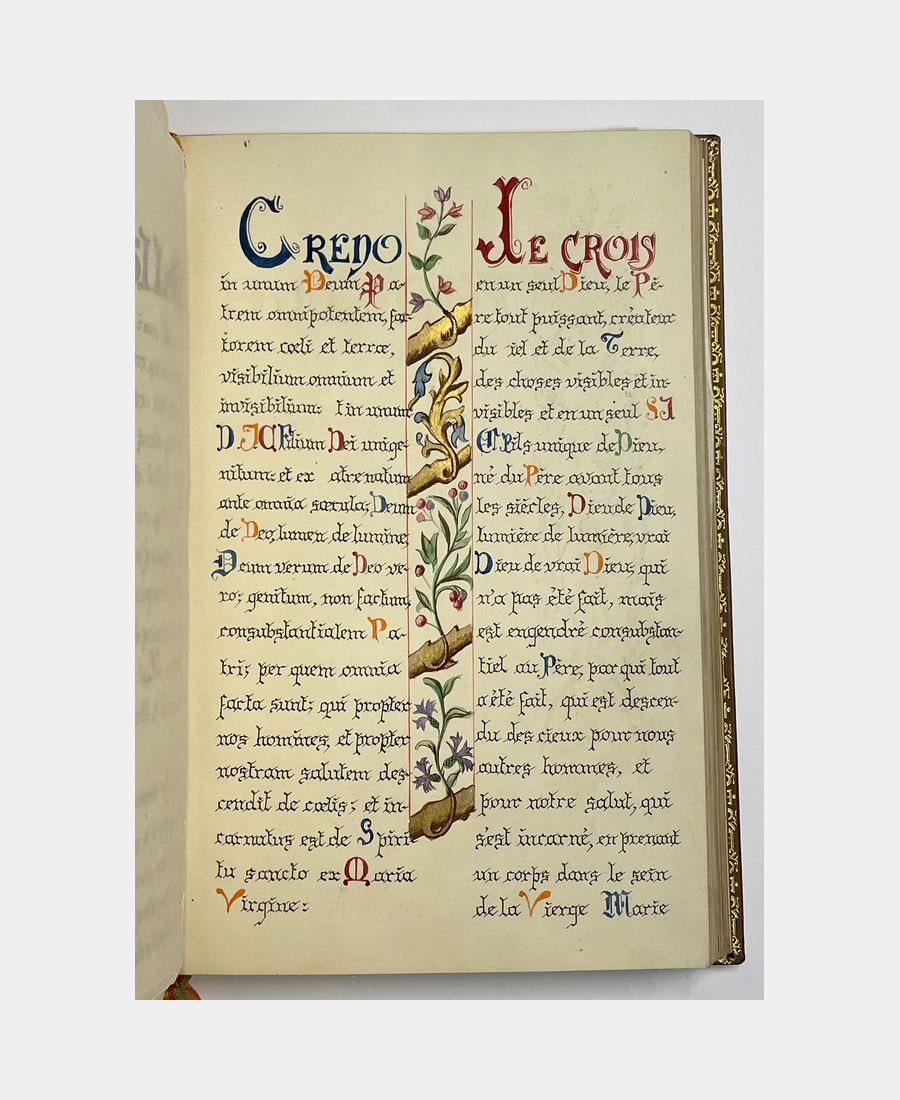 CREDO
in unum Deum Pa-
trem omnipotentem, fac-
torem cœli et terræ,
visibilium omnium et
invisibilium: t in unum
D. JC Filium Dei unige-
nitum: et ex atre natum
ante omnia sœcula; Deum
de Deo, lumen, de lumine,
Deum verum de Deo ve-
ro; genitum, non factum,
consubstantialem Pa-
tri; per quem omnia
facta sunt; qui propter
nos homines, et propter
nostram salutem des-
cendit de cœlis; et in-
carnatus est de Spiri-
tu sancto ex Maria
Virgine:
JE CROIS
en un seul Dieu, le Pè-
re tout puissant, créateur
du iel et de la Terre,
des choses visibles et in-
visibles et en un seul SJ
C Fils unique de Dieu,
né du Père avant tous
les siècles, Dieu de Dieu,
lumière de lumière, vrai
Dieu de vrai Dieu, qui
n'a pas été fait, mais
est engendré consubstan-
tiel au Père, par qui tout
a été fait, qui est descen-
du des cieux pour nous
autres hommes, et
pour notre salut, qui
s'est incarné, en prenant
un corps dans le sein
de la Vierge Marie